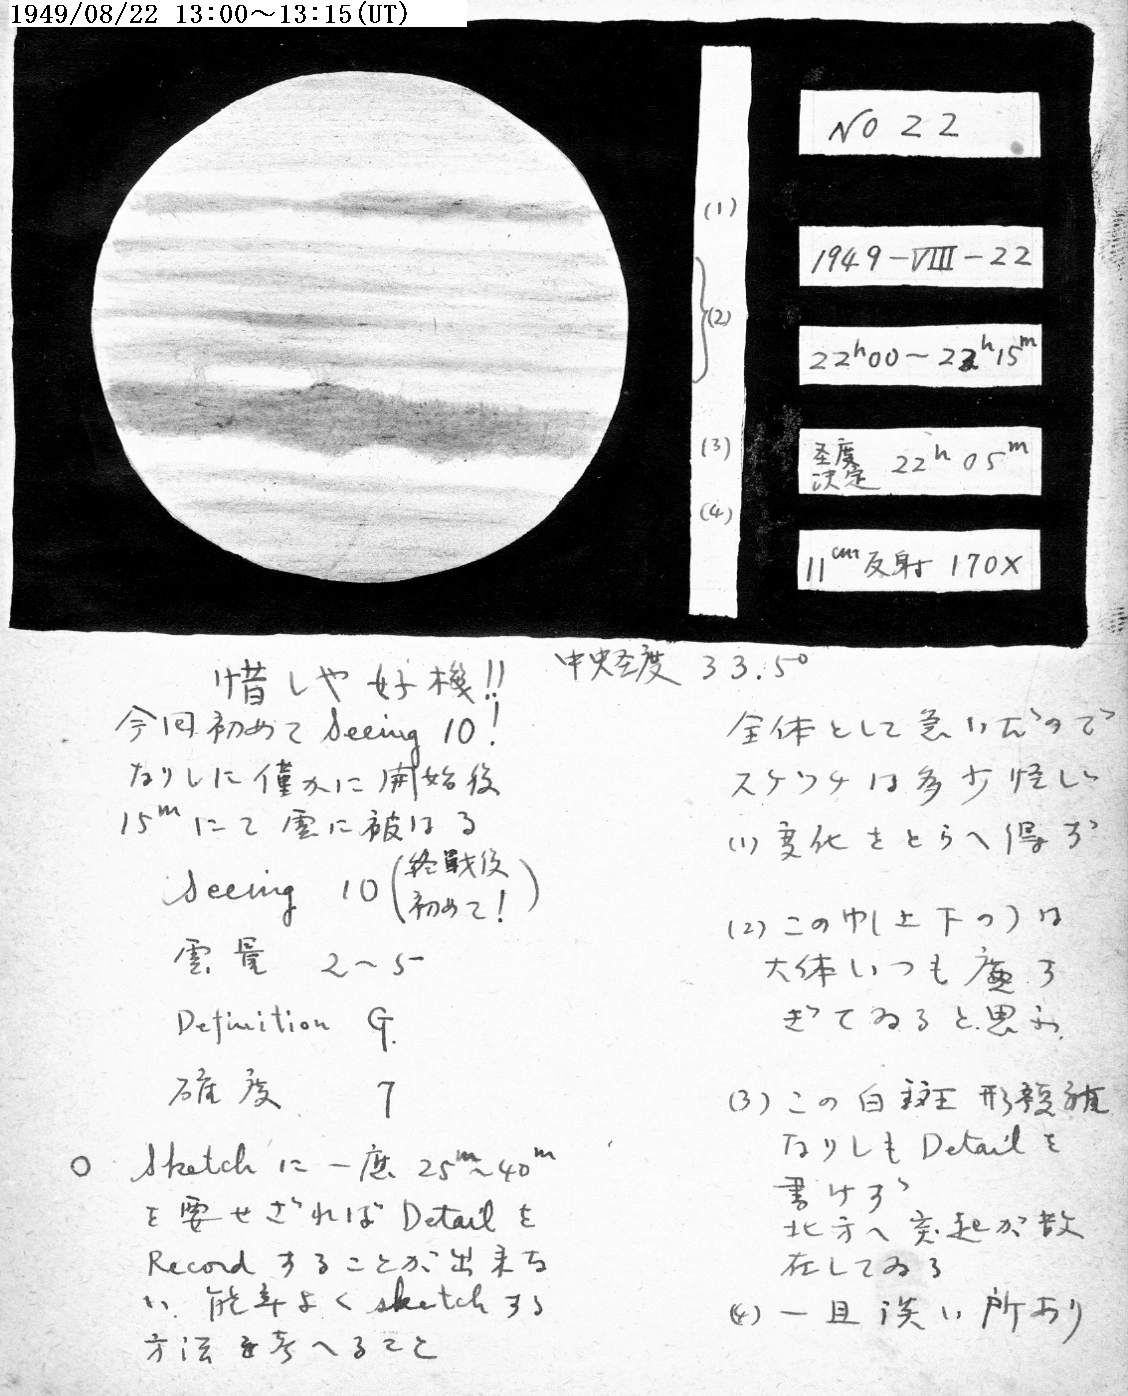 1949/08/22 13:00～13:15(UT)
No 22
(1)
1949-VIII-22
(2)
22h00～22h15m
(3)
圣度決定 22h05m
(4)
11cm反射 170X
中央圣度 33.5°
惜しや好機!!
今回初めて Seeing 10!
なりしに僅かに開始後
15mにて雲に被はる
Seeing 10 (終戦後初めて!)
雲量 2～5
Definition G.
確度 7
○ Sketchに一度25m～40m
を要せざればDetailを
Recordすることが出来な
い、能率よくsketchする
方法を考へること
全体として急いだので
スケツチは多少怪しい
(1) 変化をとらへ得ず
(2) この巾(上下の)は
大体いつも廣す
ぎてゐると思ふ.
(3) この白斑 形複雑
なりしもDetailを
書けず
北方へ突起が散
在してゐる
(4) 一旦淡い所あり